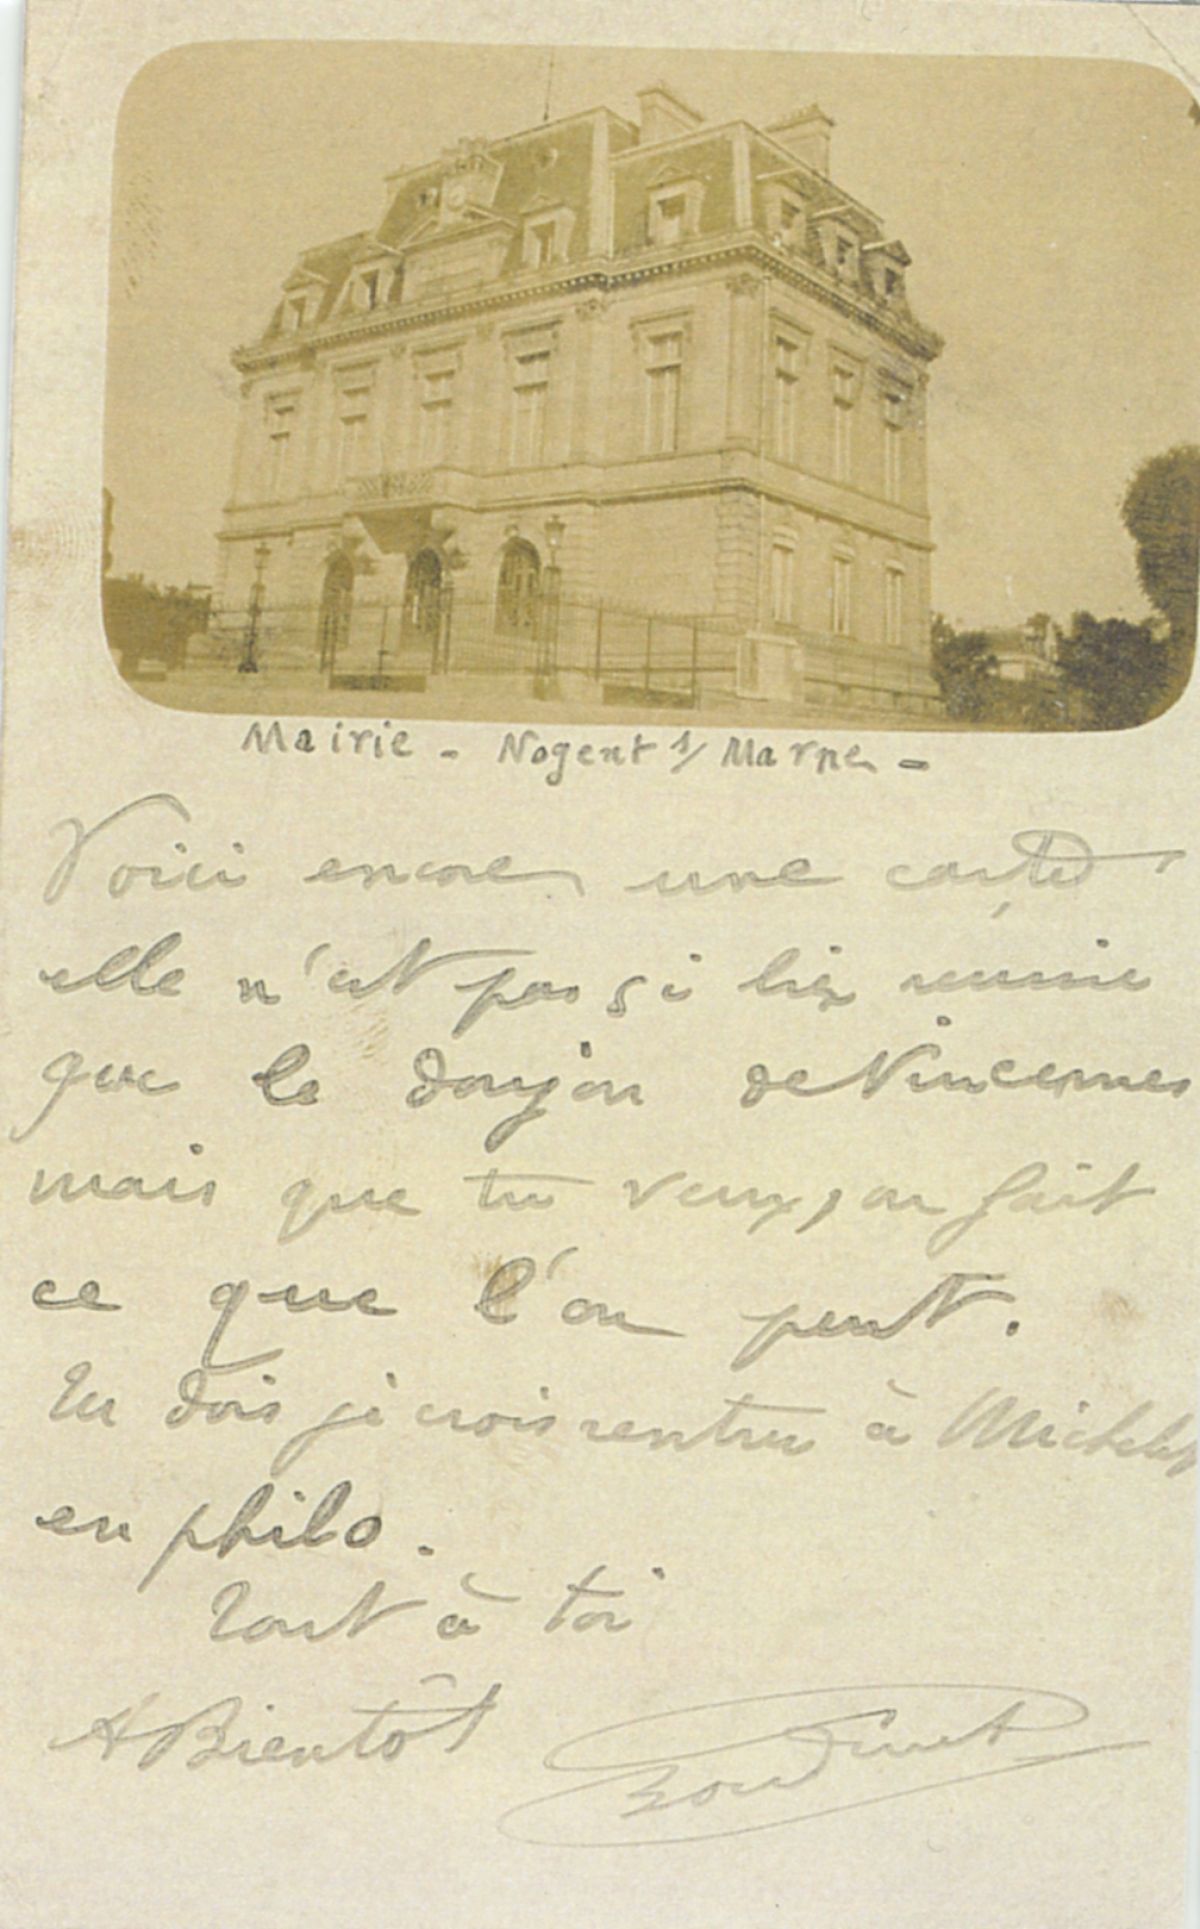 Mairie - Nogent s/ Marne -
Voici encore une carte,
elle n'est pas si bien réussie
que le donjon de Vincennes
mais que tu veux, on fait
ce que l'on peut.
Tu dois je crois rentrer à Michelet
en philo.
Tout à toi
A Bientôt